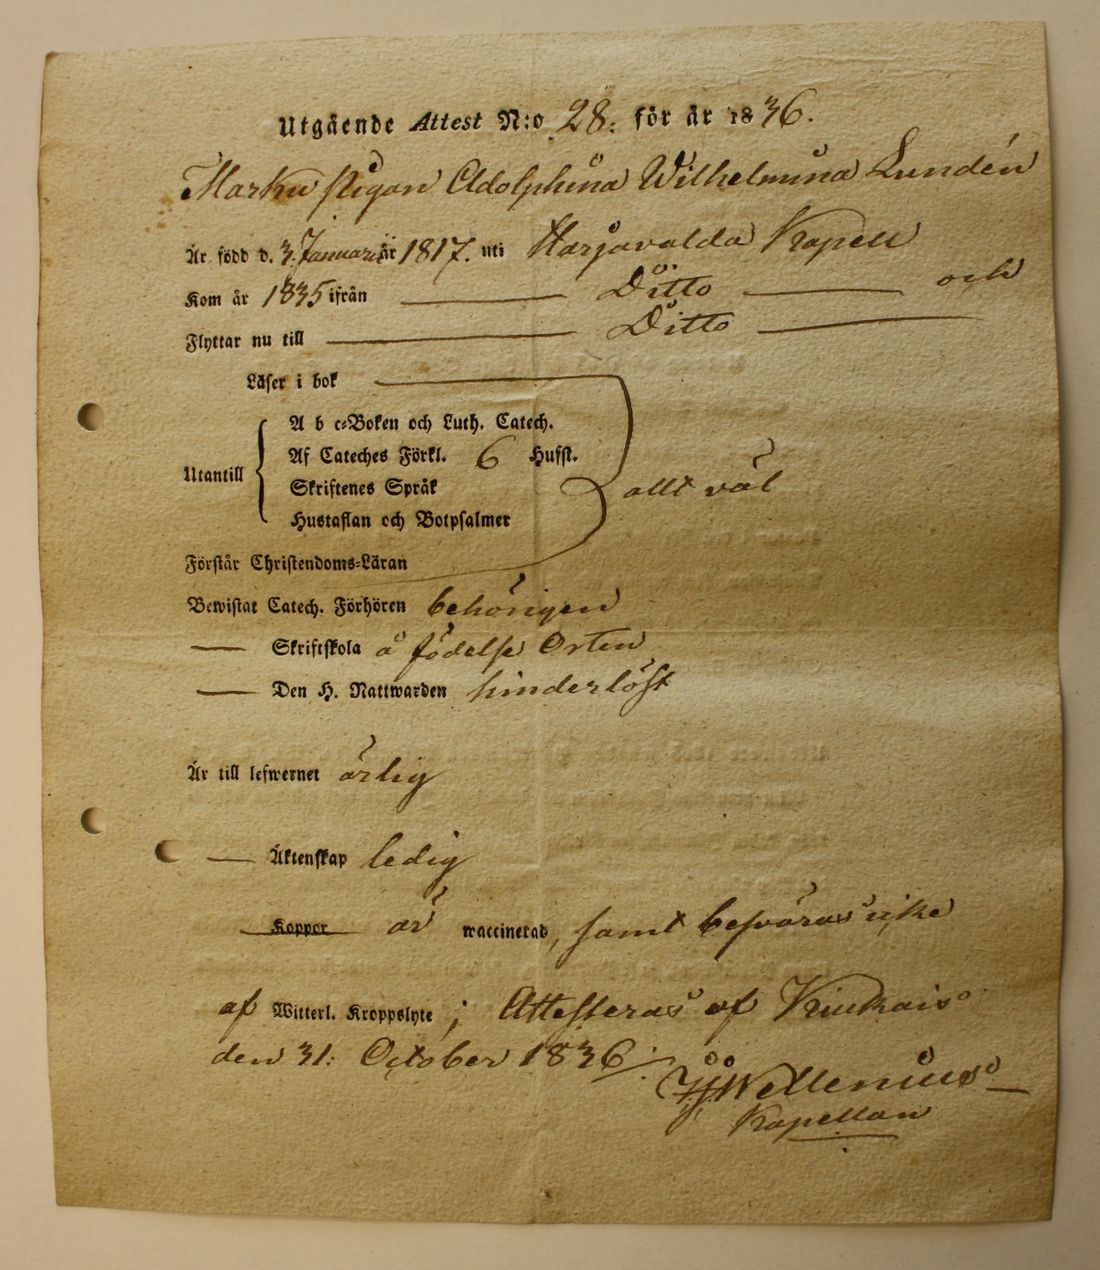 Utgående Attest N:o 28. för år 1836.
pigan Adolphina Wilhelmina Lundén
Är född d. 3. Januarii år 1817. uti Harjavalda Kapell
Kom år 1835 ifrån — Ditto — och
Flyttar nu till — Ditto —
Läser i bok
A b c-Boken och Luth. Catech.
Af Cateches Förkl. 6 Hufst.
Utantill
Skriftenes Språk
allt väl
Hustaflan och Botpsalmer
Förstår Christendoms-Läran
Bewistat Catech. Förhören behörigen
— Skriftskola å födelse Orten
— Den H. Nattwarden hinderlöst
Är till lefwernet ärlig
— Äktenskap ledig
Koppor är waccinerad, samt besväras icke
af Witterl. Kroppslyte; Attesteras af Kiukais
den 31. October 1836.
Wellenius
Kapellan